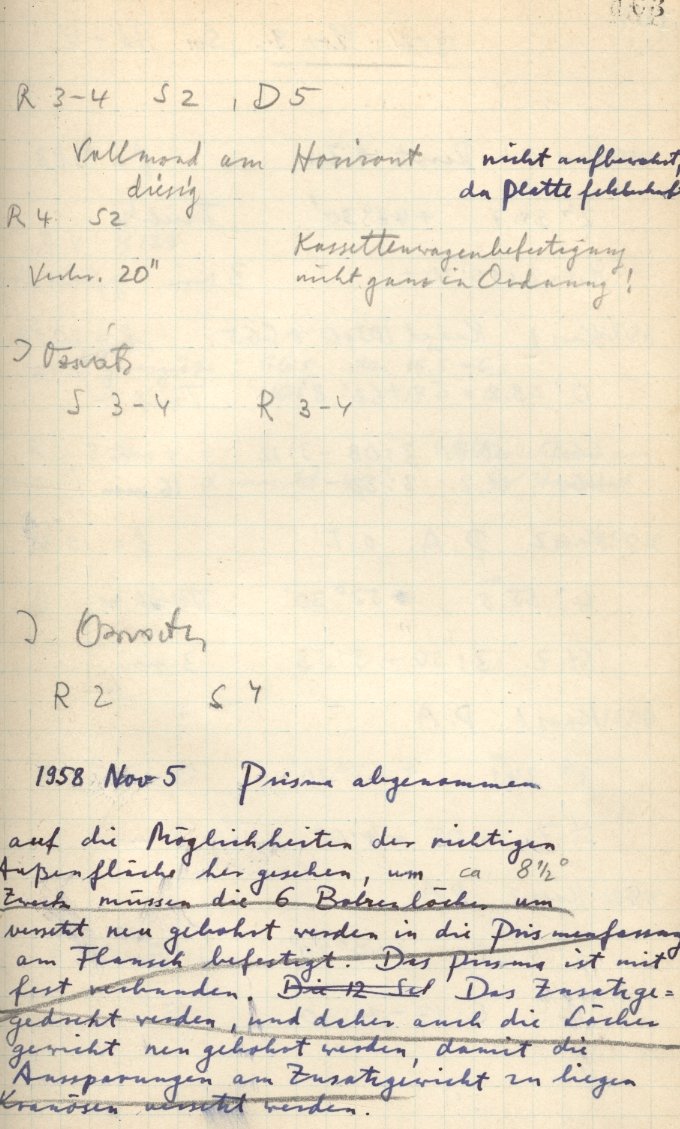 103
R 3-4 S 2 , D 5
Vollmond am Horizont nicht aufbewahrt,
diesig da Platte fehlerhaft
R 4 S2
Kassettenwagenbefestigung
Verbr. 20" nicht ganz in Ordnung !
S 3-4 R 3-4
R 2 S 4
1958 Nov 5 Prisma abgenommen
auf die Möglichkeiten der richtigen
Außenfläche her gesehen, um ca 8 1/2°
Zweck müssen die 6 Bohrenlöcher um
versetzt neu gebohrt werden in die Prismenfassung
am Flansch befestigt. Das Prisma ist mit
fest verbunden. Die 12 Sch Das Zusatzge=
gedreht werden, und daher auch die Löcher
gewicht neu gebohrt werden, damit die
Aussparungen am Zusatzgewicht zu liegen
Kranösen versetzt werden.